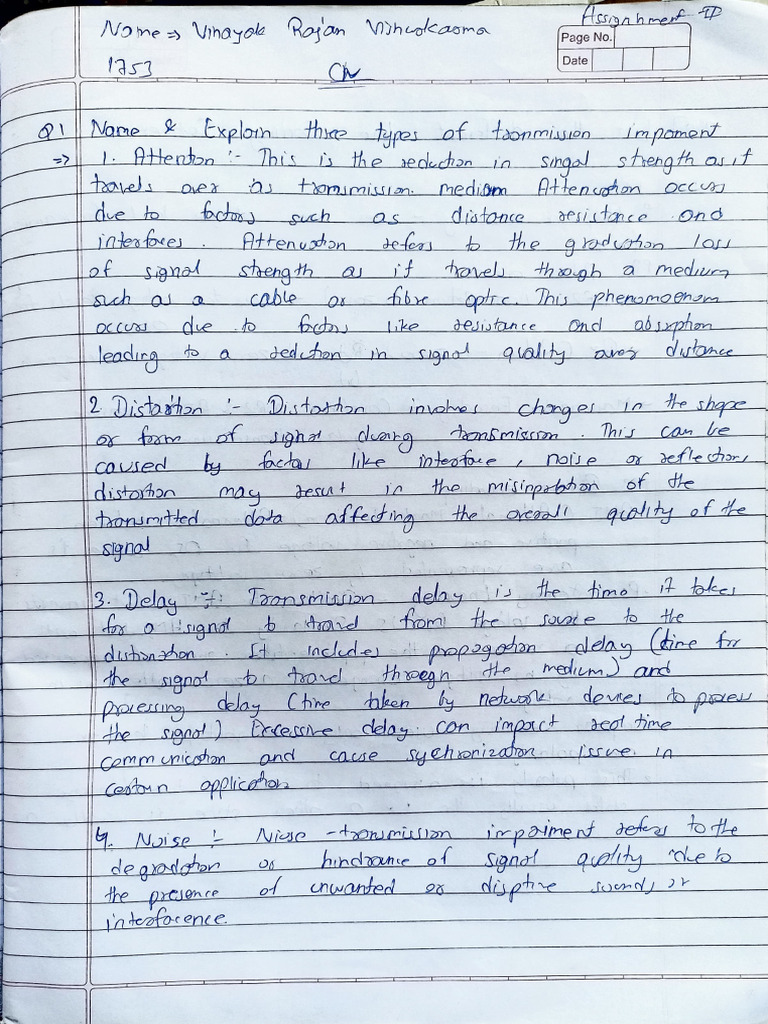 Assignment - II
Name => Vinayak Rajan Vishwakaoma
Page No.
Date
1753
CN
Q1 Name & Explain three types of tronmission impoment
=> 1. Attention :- This is the reduction in singal strength as it
travels over as transmission medium Attenuation occurs
due to factors such as distance resistance and
interfaces. Attenuation refers to the graduation loss
of signal strength as it travels through a medium
such as a cable or fibre optic. This phenomoenom
occurs due to factors like resistance and absrption
leading to a reduction in signal quality over distance
2 Distortion :- Distortion involves changes in the shape
or form of signal during transmission. This can be
caused by factor like interface, noise or reflection,
distortion may result in the misinpretation of the
transmitted data affecting the overall quality of the
signal
3. Delay :- Transmission delay is the time it takes
for a signal to travel from the source to the
distination. It includes propogation delay (time for
the signal to travel throegn the medium) and
processing delay (time taken by network devies to process
the signal) Excessive delay can impact real time
communication and cause sychronization issue in
certain application
4. Noise :- Niose - transmission impaiment refers to the
degradation or hindrance of signal quality due to
the presence of unwanted or disptive sounds or
interfacence.